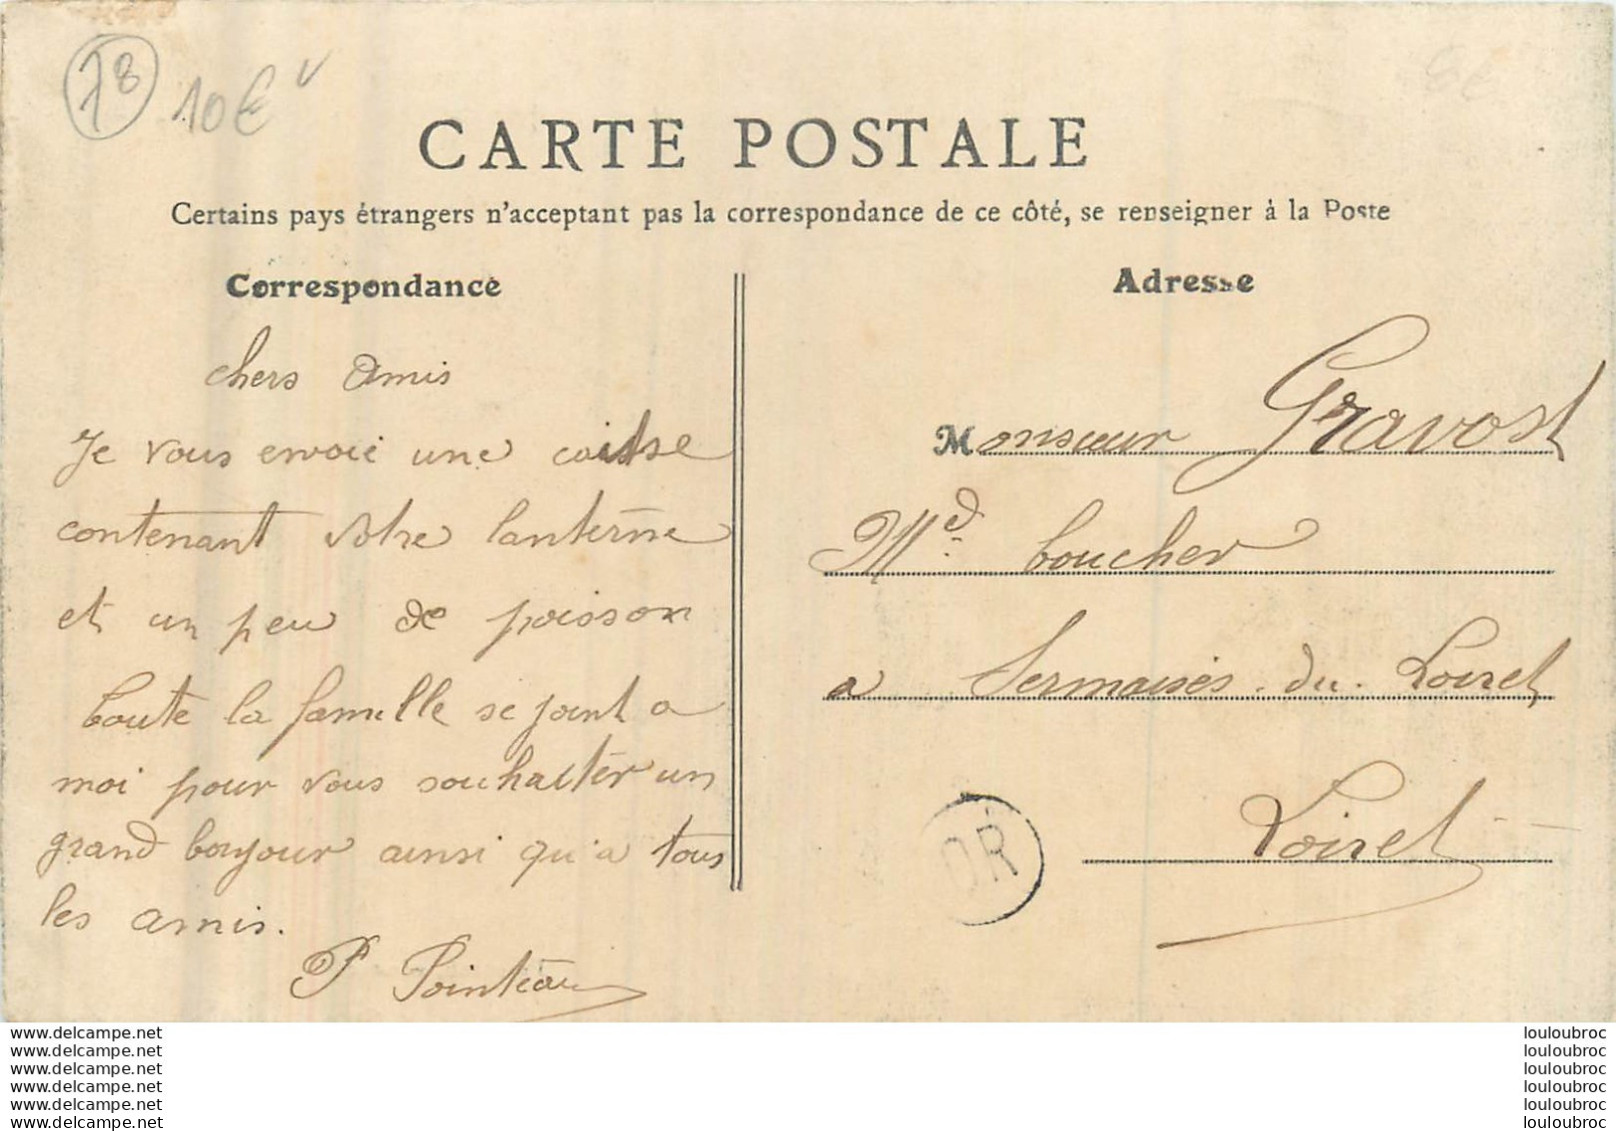 18
10€ v
8€
CARTE POSTALE
Certains pays étrangers n'acceptant pas la correspondance de ce côté, se renseigner à la Poste
Correspondance
chers Amis
Je vous envoie une caisse
contenant votre lanterne
et un peu de poisson
toute la famille se joint a
moi pour vous souhaiter un
grand bonjour ainsi qu'a tous
les amis.
P Pointeau
Adresse
Monsieur Gravost
Md boucher
a Sermaises. du. Loiret
Loiret
OR
www.delcampe.net
www.delcampe.net
www.delcampe.net
www.delcampe.net
www.delcampe.net
www.delcampe.net
louloubroc
louloubroc
louloubroc
louloubroc
louloubroc
louloubroc